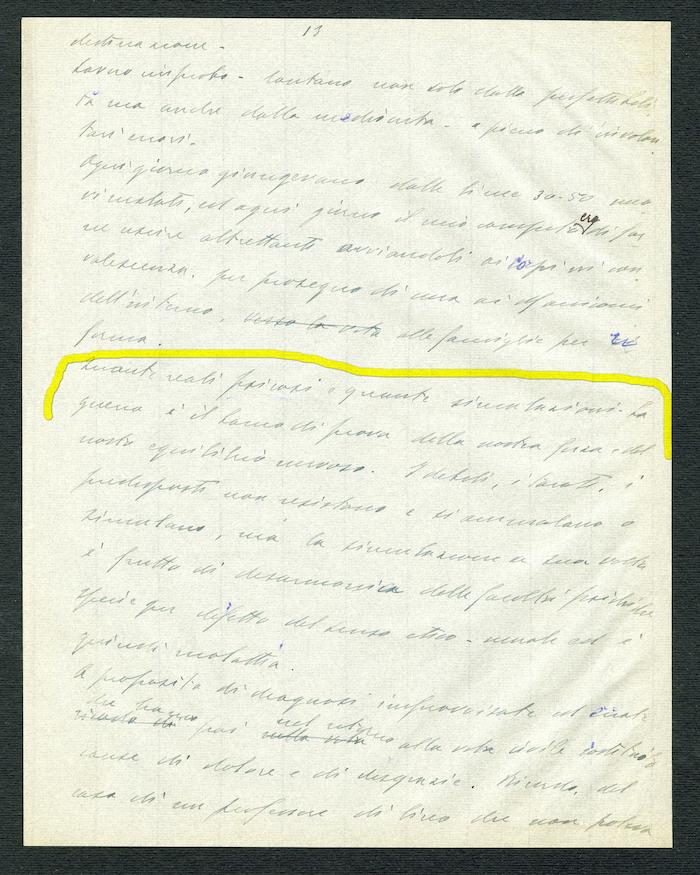 13
destinazione -
Lavoro improbo - lontano non solo dalla perfettibili
tà ma anche dalla mediocrità - e pieno di involon
tari errori.
Ogni giorno giungevano dalle linee 30-50 neu
ro malati, ed ogni giorno il mio compito era di far
ne uscire altrettanti avviandoli ai corpi in con
valescenza, per proseguo di cura ai
dell'interno, verso la vita alle famiglie per
forma.
Quante reali psicosi e quante simulazioni. La
guerra è il banco di prova della nostra forza, del
nostro equilibrio nervoso. I deboli, i tarati, i
predisposti non resistono e si ammalano o
simulano, ma la simulazione a sua volta
è frutto di desarmonica delle facoltà psichiche
specie per difetto del senso etico - morale ed è
quindi malattia.
A proposito di diagnosi improvvisate ed
che hanno nel ritorno
ricordo di poi nella vita alla vita civile costituito
cause di dolore e di disgrazie. Ricordo, del
caso di un professore di liceo che non poteva